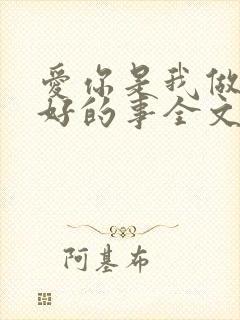 爱你是我做
好的事全文
阿基布